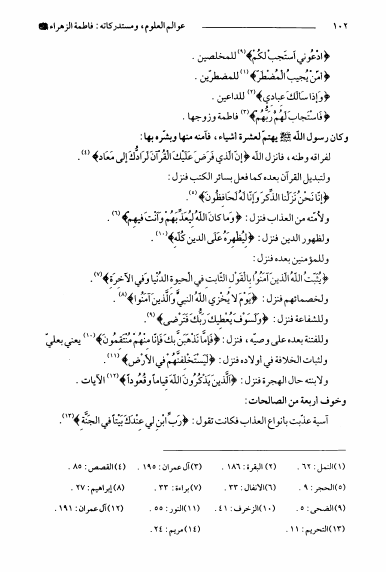 ١٠٢ عوالم العلوم، ومستدركاته: فاطمة الزهراء
﴿ادْعُوني أَستَجِبْ لَكُمْ﴾(٩) للمخلصين .
﴿امّنْ يُجيبُ الْمُضْطَرَّ﴾(١) للمضطرّين .
﴿وَإذا سَألَكَ عِبادي﴾(٢) للداعين .
﴿فَاسْتَجابَ لَهُمْ رَبُّهُمْ﴾(٣) فاطمة وزوجها .
وكان رسول اللّه ﷺ يهتمّ لعشرة أشياء، فآمنه منها وبشّره بها:
لفراقه وطنه، فانزل اللّه ﴿إنَّ الَّذي فَرَضَ عَلَيْكَ الْقُرْآنَ لَرادُّكَ إلى مَعاد﴾(٤).
ولتبديل القرآن بعده كما فعل بسائر الكتب فنزل:
﴿إنّا نَحْنُ نَزَّلْنا الذِّكرَ وَإنّا لَهُ لَحافِظُونَ﴾(٥).
ولأمّته من العذاب فنزل: ﴿وَما كانَ اللّهُ لِيُعَذِّبَهُمْ وَأنْتَ فيهِمْ﴾(٦).
ولظهور الدين فنزل: ﴿لِيُظْهِرَهُ عَلَى الدينِ كُلِّه﴾(١٠).
وللمؤمنين بعده فنزل:
﴿يُثَبِّتُ اللّهُ الَّذينَ آمَنُوا بِالْقَوْلِ الثّابِت في الحَيوةِ الدُّنْيا وَفي الآخِرَةِ﴾(٧).
ولخصمائهم فنزل: ﴿يَوْمَ لا يُخْزي اللّهُ النبيَّ وَالَّذينَ آمَنُوا﴾(٨).
وللشفاعة فنزل: ﴿وَلَسَوْفَ يُعْطيكَ رَبُّكَ فَتَرْضى﴾(٩).
وللفتنة بعده على وصيّه، فنزل: ﴿فَإمّا نَذْهَبَنَّ بِكَ فَإنّا مِنْهُمْ مُنْتَقِمُونَ﴾(١٠) يعني بعليّ
ولثبات الخلافة في أولاده فنزل: ﴿لَيَسْتَخْلِفَنَّهُمْ في الأرْضِ﴾(١١).
ولابنته حال الهجرة فنزل: ﴿الَّذينَ يَذْكُرُونَ اللّهَ قِياماً وَقُعُوداً﴾(١٢) الآيات .
وخوف أربعة من الصالحات:
آسية عذّبت بأنواع العذاب فكانت تقول: ﴿رَبِّ ابْنِ لي عِنْدَكَ بَيْتاً في الجَنَّةِ﴾(١٣).
(١) النمل: ٦٢ . (٢) البقرة: ١٨٦ . (٣) آل عمران: ١٩٥ . (٤) القصص: ٨٥ .
(٥) الحجر: ٩ . (٦) الأنفال: ٣٣ . (٧) براءة: ٣٣ . (٨) إبراهيم: ٢٧ .
(٩) الضحى: ٥ . (١٠) الزخرف: ٤١ . (١١) النور: ٥٥ . (١٢) آل عمران: ١٩١ .
(١٣) التحريم: ١١ . (١٤) مريم: ٢٤ .